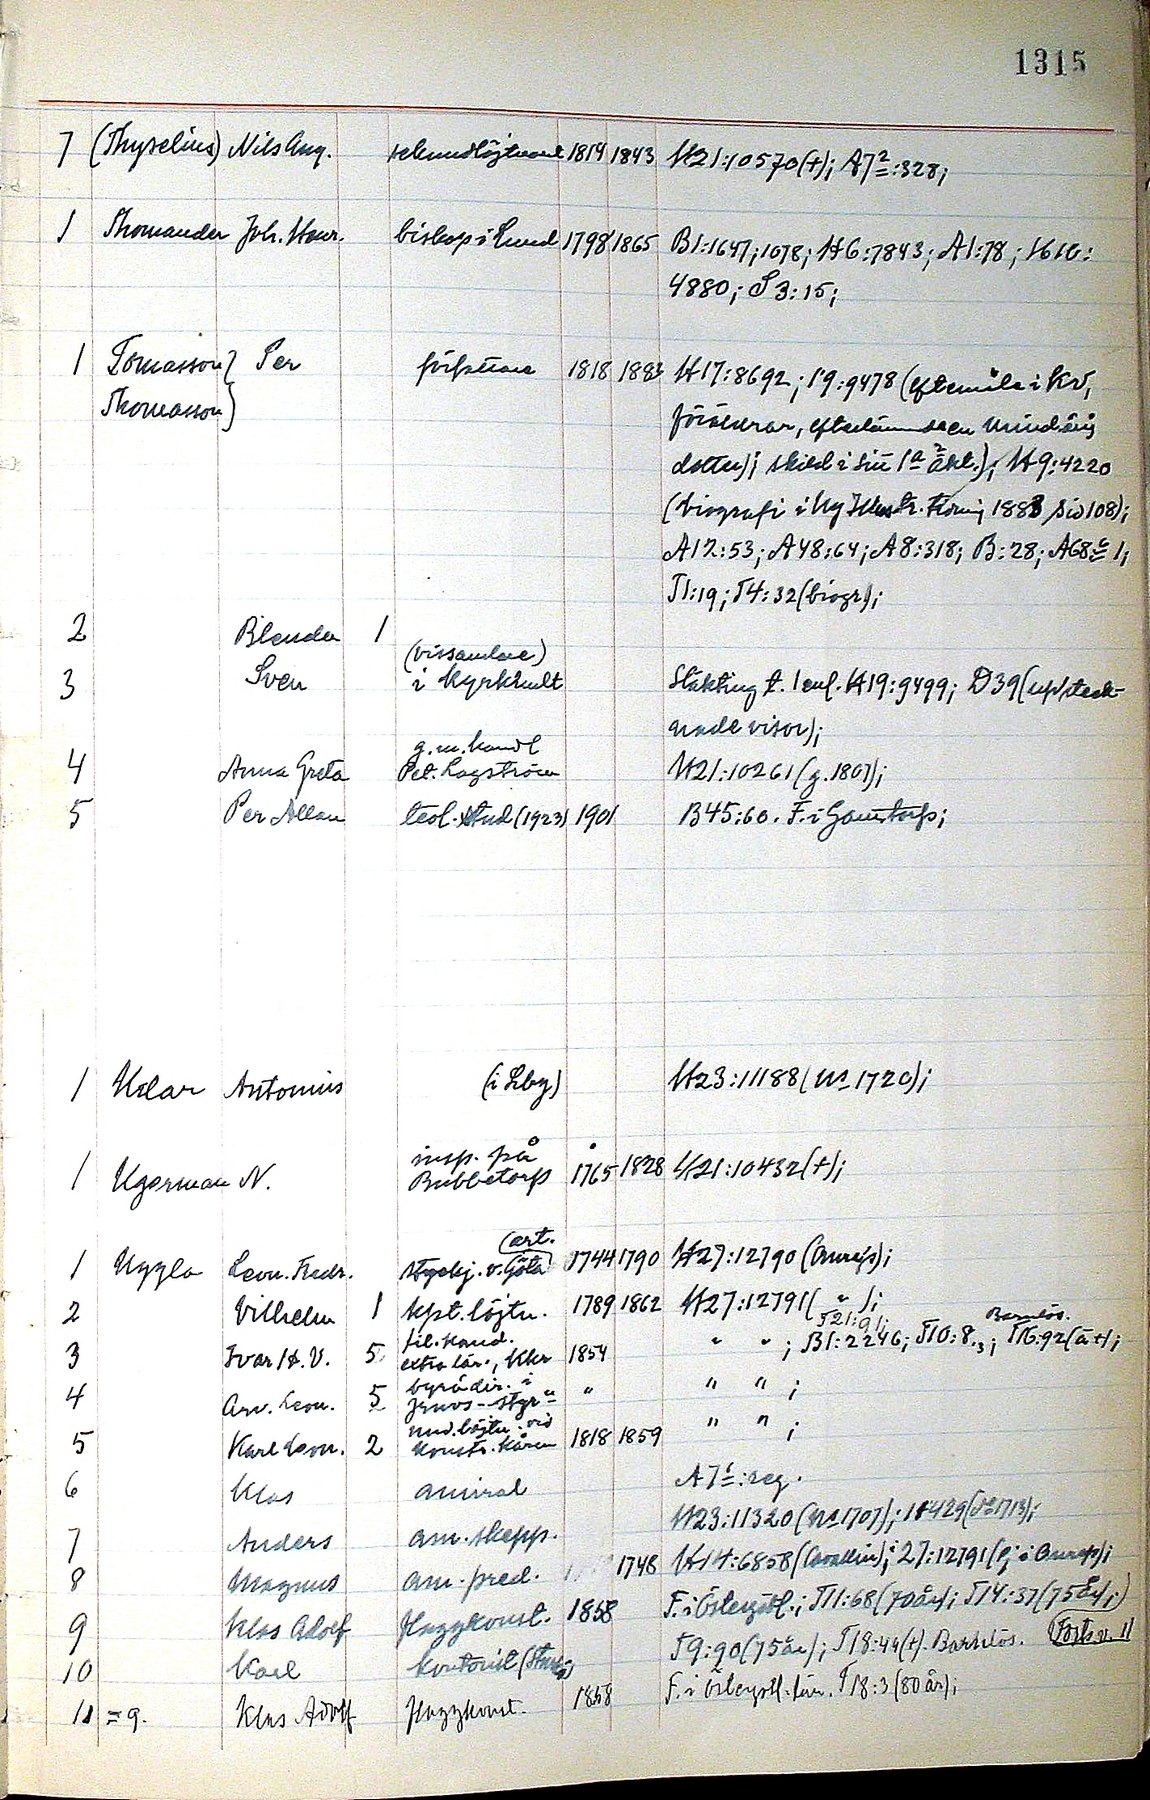 1315
7 (Thyselius) Nils Aug. sekundlöjtnant 1814 1843 H21:10570(+); A7²:328;
1 Thomander Joh. Henr. biskop i Lund 1798 1865 B1:1647;1678; H6:7843; A1:78; H10:
4880; S3:15;
1 Tomasson} Per författare 1818 1883 H17:8692; 19:9478 (eftermäle i Kv,
Thomasson} föräldrar, efterlämn en minderårig
dotter); skild i sitt 1a äkt.); H9:4220
(biografi i Ny Illustr. Tidning 1883 sid 108);
A12:53; A48:64; A8:318; B:28; A68 1;
T1:19; T4:32 (biogr);
2 Blenda 1
(vissamlare)
3 Sven i Kyrkhult Släkting t. 1 enl. H19:9499; D39 (uppteck-
nade visor);
g.m. handl
4 Anna Greta Pet. Lagström H21:10261 (g.1807);
5 Per Allan teol. stud (1923) 1901 B45:60. F. i Gamstorp;
1 Udar Antonius (i Lby) H23:11188 (No 1720);
insp. på
1 Ugerman N. Bubbetorp 1765 1828 H21:10432(+);
art.
1 Uggla Leon. Fredr. styckj. v. Göta 1744 1790 H27:12790 (Amrep);
2 Vilhelm 1 kpt. löjtn. 1789 1862 H27:12791 ( " );
T21:91; Barnlös.
fil. kand.
3 Ivar H. V. 5 extra lär., Khr 1854 " " ; B1:2246; T10:8.3; T16:92 (a +);
byrådir. i
4 Arv. Leon. 5 Jrnvs-styr " " " ;
und. löjtn. vid
5 Karl Leon. 2 Konstr. kåren 1818 1859 " " ;
6 Klas amiral A7:reg.
7 Anders am. skepp. H23:11320 (No 1707); 11429 (No 1713);
8 Magnus am. pred. 1748 H14:6858 (Cavallin); 27:12791 (Ej i Anrep);
9 Klas Adolf Flaggkonst. 1858 F. i Östergötl.; T11:68 (70 år); T14:37 (75 år);
T9:90 (75 år); T18:44(+). Barnlös. Forts n. 11
10 Karl Kontorist
11 = 9. Klas Adolf Flaggkonst. 1858 F. i Östergötl. län. T18:3 (80 år);